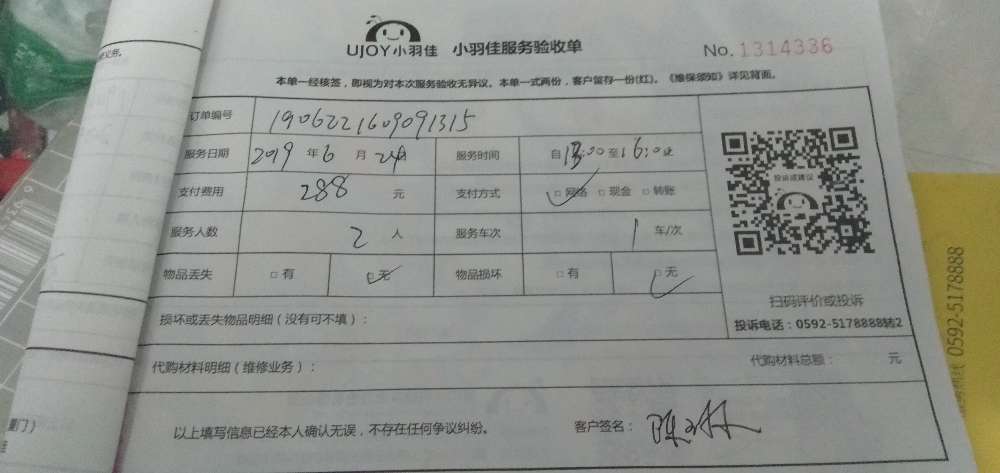 义务。
UJOY小羽佳 小羽佳服务验收单 No.1314336
本单一经核签，即视为对本次服务验收无异议。本单一式两份，客户留存一份(红)。《维保须知》详见背面。
订单编号 1906221609091315
服务日期 2019 年 6 月 24日 服务时间 自 13:00 至 16:0 止
支付费用 288 元 支付方式 □网络 □现金 □转账
投诉或建议
服务人数 2 人 服务车次 1 车/次
物品丢失 □有 □无 物品损坏 □有 □无
扫码评价或投诉
损坏或丢失物品明细（没有可不填）：
投诉电话：0592-5178888转2
代购材料明细（维修业务）： 代购材料总额： 元
以上填写信息已经本人确认无误，不存在任何争议纠纷。 客户签名：
厦门）
0592-5178888